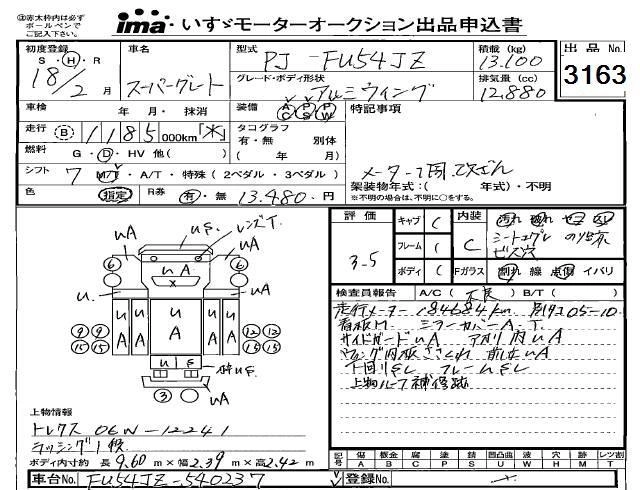 ③赤太枠内は必ず
ボールペンで
ご記入さい。
ima いすゞモーターオークション出品申込書
初度登録
S・Ⓗ・R
18/2 月
車名
スーパーグレート
型式
PJ-FU54JZ
グレード・ボディ形状
アルミウィング
積載 (kg)
13.100
排気量 (cc)
12.880
出品No.
3163
車検 年・月・抹消
装備 AC PS PW
特記事項
走行 Ⓑ 1185 000km「木」
タコグラフ
有・無 別体
( 年 月)
燃料 G・Ⓓ・HV 他( )
シフト 7 M/T・A/T・特殊(2ペダル・3ペダル)
メーター1周
架装物年式:( 年式)・不明
※不明の場合は、不明に○をする。
色 指定 R券 有・無 13.480 円
評価
3-5
キャブ ( フレーム ( ボディ (
内装 C
シートコゲ
ビス穴
Fガラス 割れ 線 点傷 イバリ
検査員報告 A/C(不良) B/T( )
走行メーター184684km 05-10
看板M ミラーカバーA.T
サイドガードuA アオリ内uA
ウィング内板ささくれ 前板uA
下回りS フレームS
上物ルーフ補修跡
uA
us.
レンズT.
uA
⑥ uA ⑥
X
u. uA
uA A uA A
⑨⑨ ⑫⑫
⑮⑮ ⑬⑮
us
枠us.
③ uA
上物情報
トレクス 06W-12241
ラッシング1条
ボディ内寸約 長9.60m×幅2.39m×高2.42m
記号 傷 A 概金 B 腐 C 塗 P 錆 S 凹凸曲 U 波 W 穴 H 跡 M レツ割 T
車台No. FU54JZ-540237
登録No.